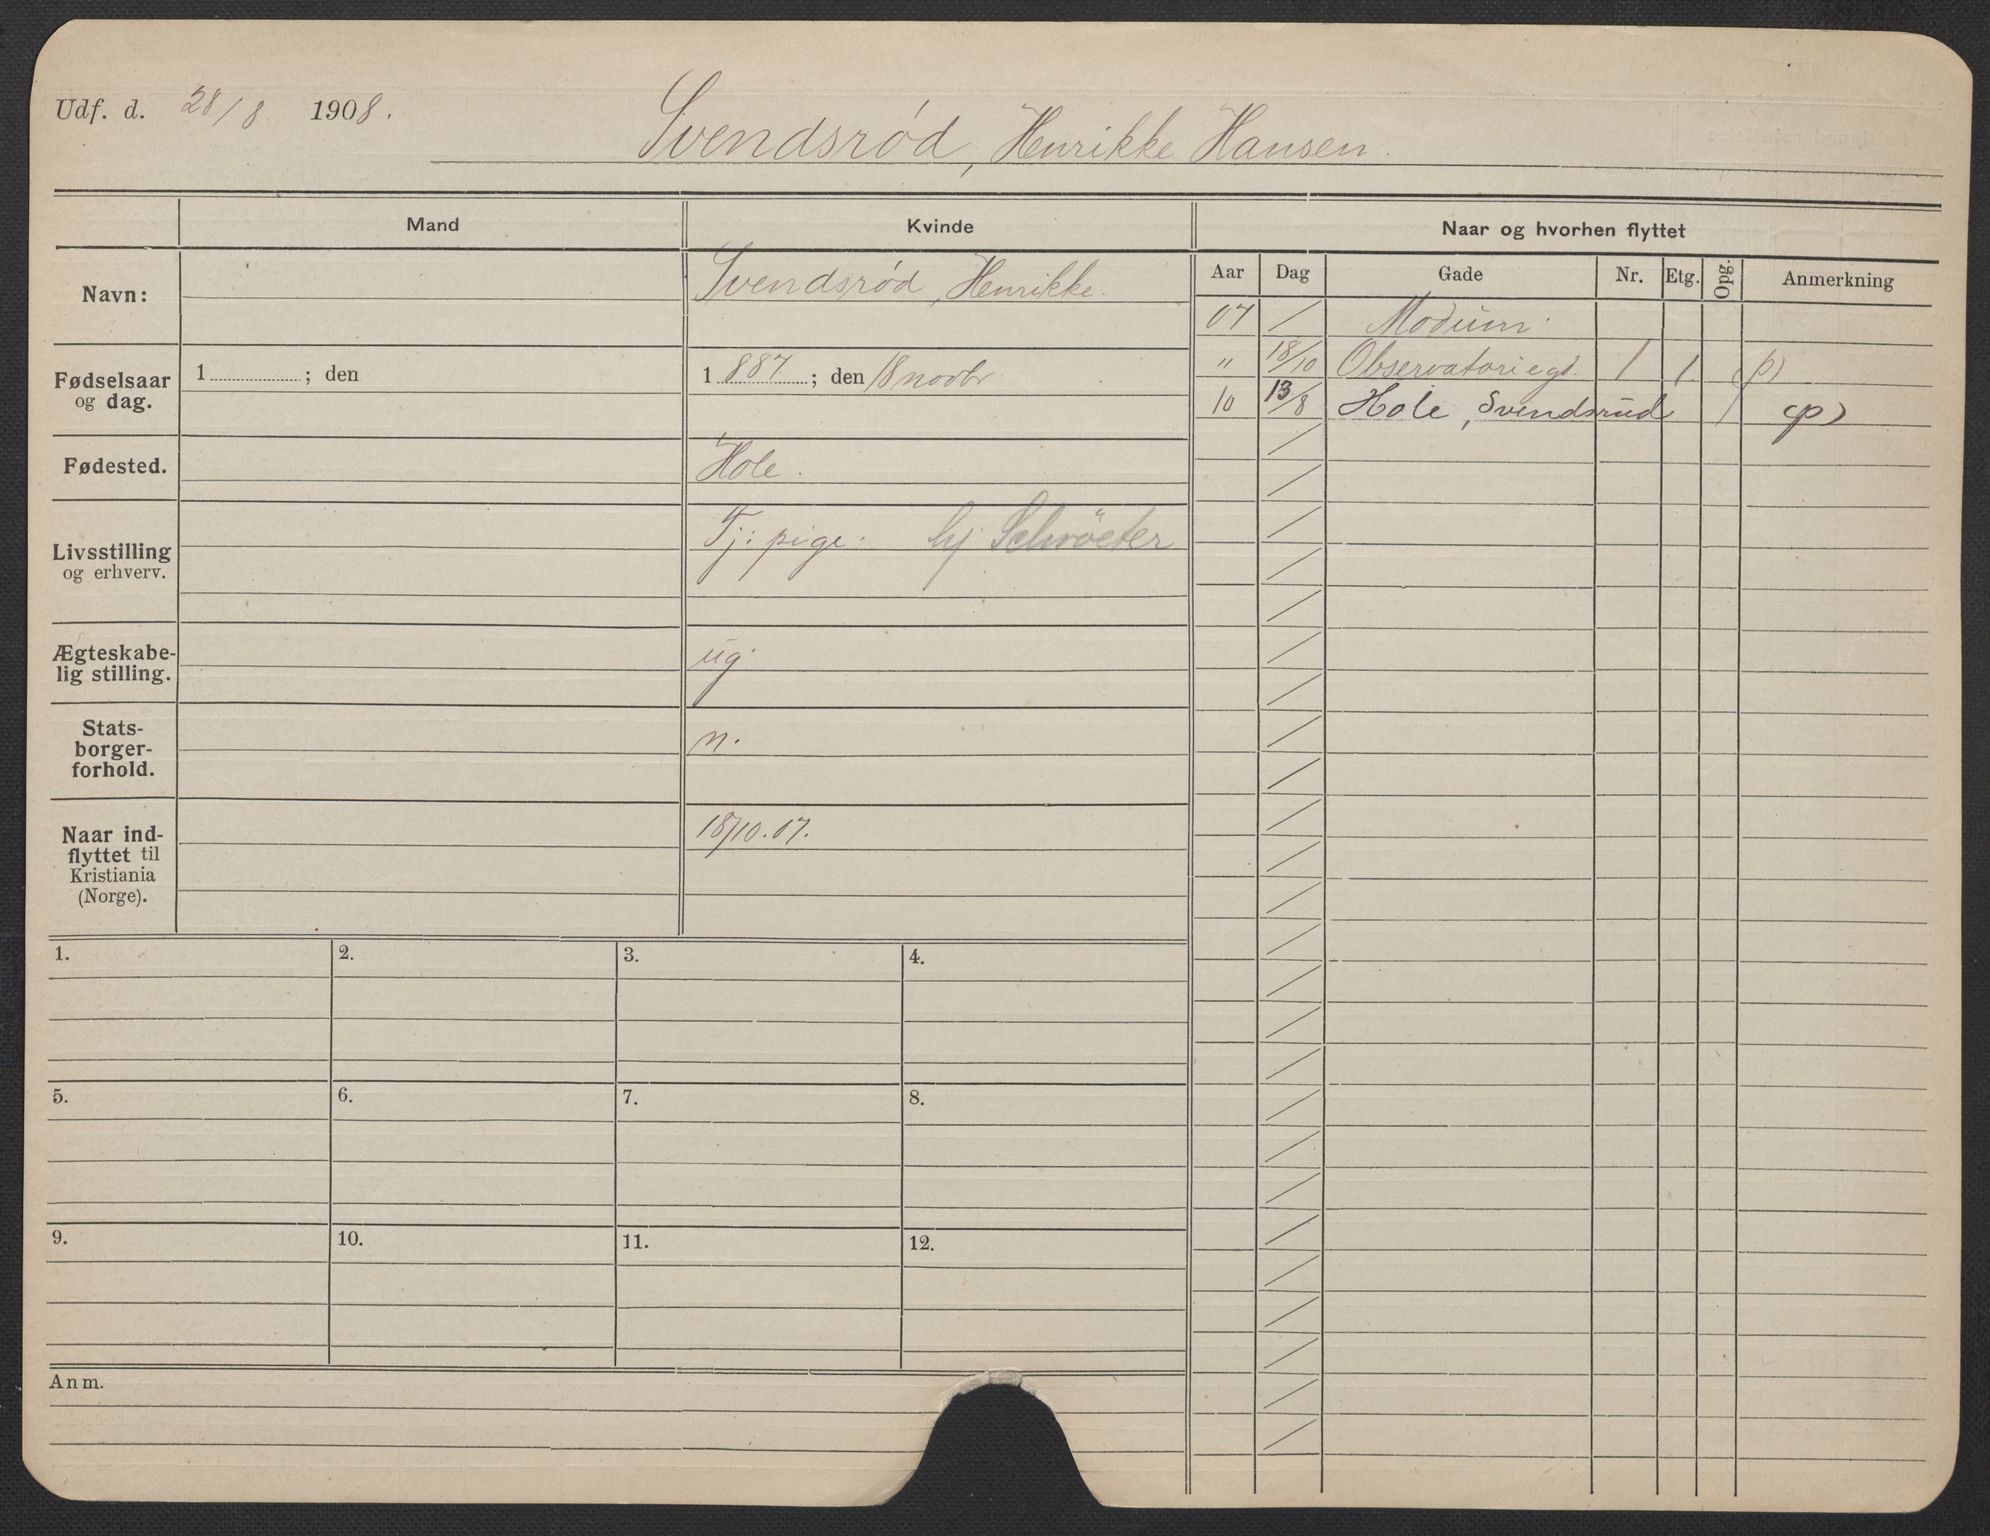 Udf. d. 28/8 1908.
Svendsrød, Henrikke Hansen.
Mand Kvinde Naar og hvorhen flyttet
Navn: Svendsrød, Henrikke.
Aar Dag Gade Nr. Etg. Opg. Anmerkning
07 / Modum.
" 18/10 Observatoriegd. 1 1. (p)
10 13/8 Hole, Svendsrud / (p)
Fødselsaar og dag. 1 ; den 1 887 ; den 18 novbr.
Fødested. Hole.
Livsstilling og erhverv. Tj: pige. hj Schröeter
Ægteskabe-
lig stilling. ug.
Stats-
borger-
forhold. n.
Naar ind-
flyttet til
Kristiania
(Norge). 18/10.07.
1. 2. 3. 4.
5. 6. 7. 8.
9. 10. 11. 12.
Anm.